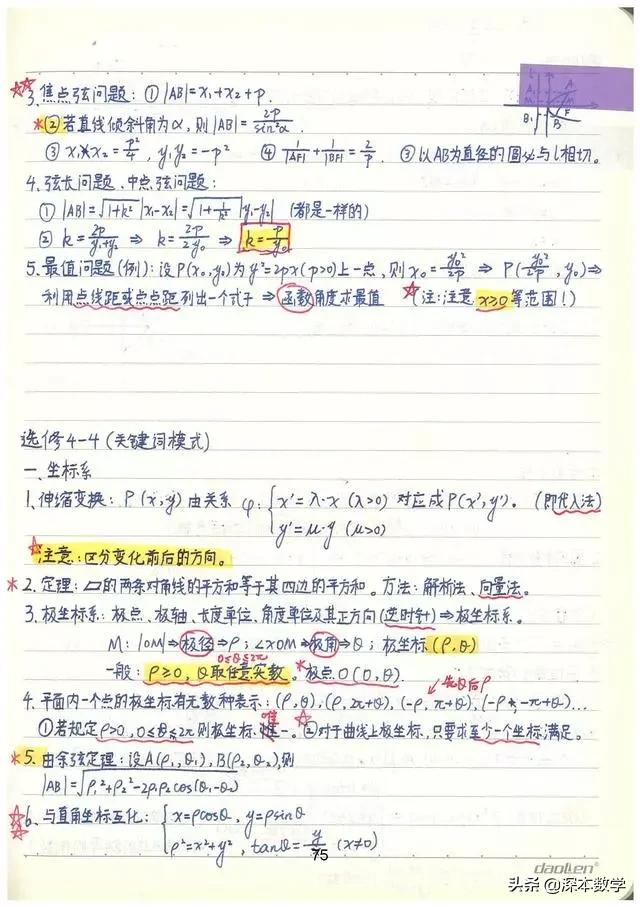 3. 焦点弦问题：① |AB|=x₁+x₂+p.
② 若直线倾斜角为α，则|AB|=2p/sin²α.
③ x₁x₂=p²/4，y₁y₂=-p² ④ 1/|AF|+1/|BF|=2/p. ⑤以AB为直径的圆必与l相切。
4. 弦长问题、中点弦问题：
① |AB|=√(1+k²)|x₁-x₂|=√(1+1/k²)|y₁-y₂| (都是一样的)
② k=2p/(y₁+y₂) ⇒ k=2p/2y₀ ⇒ k=p/y₀
5. 最值问题(例)：设P(x₀,y₀)为y²=2px(p>0)上一点，则x₀=y₀²/2p ⇒ P(y₀²/2p, y₀)⇒
利用点线距或点点距列出一个式子 ⇒ 函数角度求最值 (注：注意x≥0等范围！)
选修4-4 (关键词模式)
一、坐标系
1. 伸缩变换：P(x,y)由关系 φ：{x'=λ·x (λ>0) 对应成P(x',y')。 (即代入法)
y'=μ·y (μ>0)
注意：区分变化前后的方向。
2. 定理：▱的两条对角线的平方和等于其四边的平方和。方法：解析法、向量法。
3. 极坐标系：极点、极轴、长度单位、角度单位及其正方向(逆时针)⇒极坐标系。
M：|OM|⇒极径⇒ρ；∠xOM⇒极角⇒θ；极坐标(ρ,θ)
0≤θ≤2π
一般：ρ≥0，θ取任意实数。极点O(0,θ).
先θ后ρ
4. 平面内一个点的极坐标有无数种表示：(ρ,θ),(ρ,2π+θ),(-ρ,π+θ),(-ρ,-π+θ)...
①若规定ρ>0,0≤θ≤2π则极坐标唯一。②对于曲线上极坐标，只要求至少一个坐标满足。
5. 由余弦定理：设A(ρ₁,θ₁),B(ρ₂,θ₂),则
|AB|=√(ρ₁²+ρ₂²-2ρ₁ρ₂cos(θ₁-θ₂))
6. 与直角坐标互化：{x=ρcosθ，y=ρsinθ
ρ²=x²+y²，tanθ=y/x (x≠0)
75
daolen®
头条@深本数学